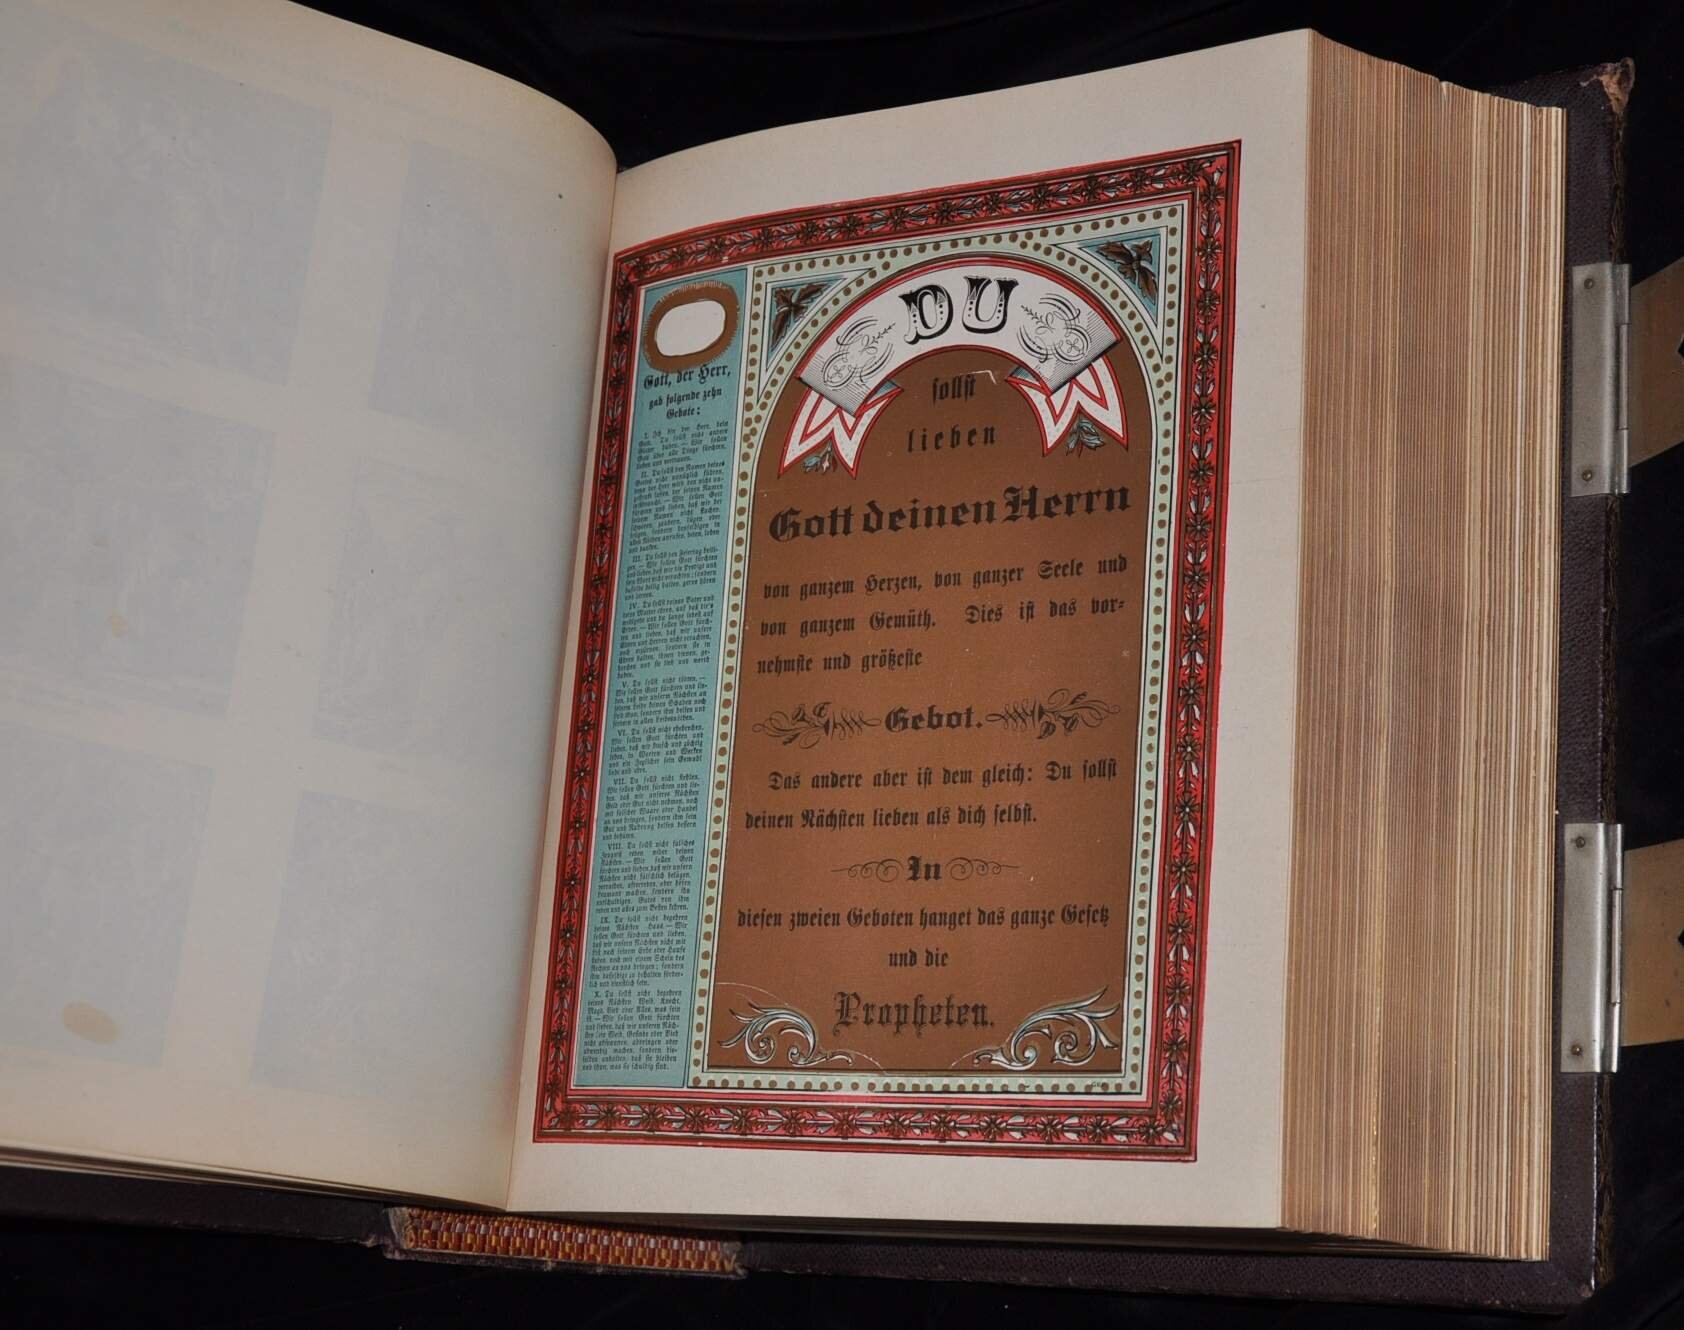 Gott, der Herr,
gab folgende zehn
Gebote:
I. Ich bin der Herr, dein
Gott. Du sollst nicht andere
Götter haben. — Wir sollen
Gott über alle Dinge fürchten,
lieben und vertrauen.
II. Du sollst den Namen deines
Gottes nicht unnützlich führen,
denn der Herr wird den nicht un-
gestraft lassen, der seinen Namen
mißbraucht. — Wir sollen Gott
fürchten und lieben, daß wir bei
seinem Namen nicht fluchen,
schwören, zaubern, lügen oder
trügen, sondern denselbigen in
allen Nöthen anrufen, beten, loben
und danken.
III. Du sollst den Feiertag heili-
gen. — Wir sollen Gott fürchten
und lieben, daß wir die Predigt und
sein Wort nicht verachten; sondern
dasselbe heilig halten, gerne hören
und lernen.
IV. Du sollst deinen Vater und
deine Mutter ehren, auf daß dir's
wohlgehe und du lange lebest auf
Erden. — Wir sollen Gott fürch-
ten und lieben, daß wir unsere
Eltern und Herren nicht verachten,
noch erzürnen, sondern sie in
Ehren halten, ihnen dienen, ge-
horchen und sie lieb und werth
haben.
V. Du sollst nicht tödten. —
Wir sollen Gott fürchten und lie-
ben, daß wir unserm Nächsten an
seinem Leibe keinen Schaden noch
Leid thun, sondern ihm helfen und
fördern in allen Leibesnöthen.
VI. Du sollst nicht ehebrechen.
Wir sollen Gott fürchten und
lieben, daß wir keusch und züchtig
leben, in Worten und Werken
und ein Jeglicher sein Gemahl
liebe und ehre.
VII. Du sollst nicht stehlen.
Wir sollen Gott fürchten und lie-
ben, daß wir unseres Nächsten
Geld oder Gut nicht nehmen, noch
mit falscher Waare oder Handel
an uns bringen, sondern ihm sein
Gut und Nahrung helfen bessern
und behüten.
VIII. Du sollst nicht falsches
Zeugniß reden wider deinen
Nächsten. — Wir sollen Gott
fürchten und lieben, daß wir unsern
Nächsten nicht fälschlich belügen,
verrathen, afterreden, oder bösen
Leumund machen, sondern ihn
entschuldigen, Gutes von ihm
reden und alles zum Besten kehren.
IX. Du sollst nicht begehren
deines Nächsten Haus. — Wir
sollen Gott fürchten und lieben,
daß wir unserm Nächsten nicht mit
List nach seinem Erbe oder Hause
stehen, noch mit einem Schein des
Rechten an uns bringen; sondern
ihm dasselbige zu behalten förder-
lich und dienstlich sein.
X. Du sollst nicht begehren
deines Nächsten Weib, Knecht,
Magd, Vieh oder Alles, was sein
ist. — Wir sollen Gott fürchten
und lieben, daß wir unserem Näch-
sten sein Weib, Gesinde oder Vieh
nicht abspannen, abdringen oder
abwendig machen, sondern die-
selben anhalten, daß sie bleiben
und thun, was sie schuldig sind.
DU
sollst
lieben
Gott deinen Herrn
von ganzem Herzen, von ganzer Seele und
von ganzem Gemüth. Dies ist das vor-
nehmste und größeste
Gebot.
Das andere aber ist dem gleich: Du sollst
deinen Nächsten lieben als dich selbst.
In
diesen zweien Geboten hanget das ganze Gesetz
und die
Propheten.